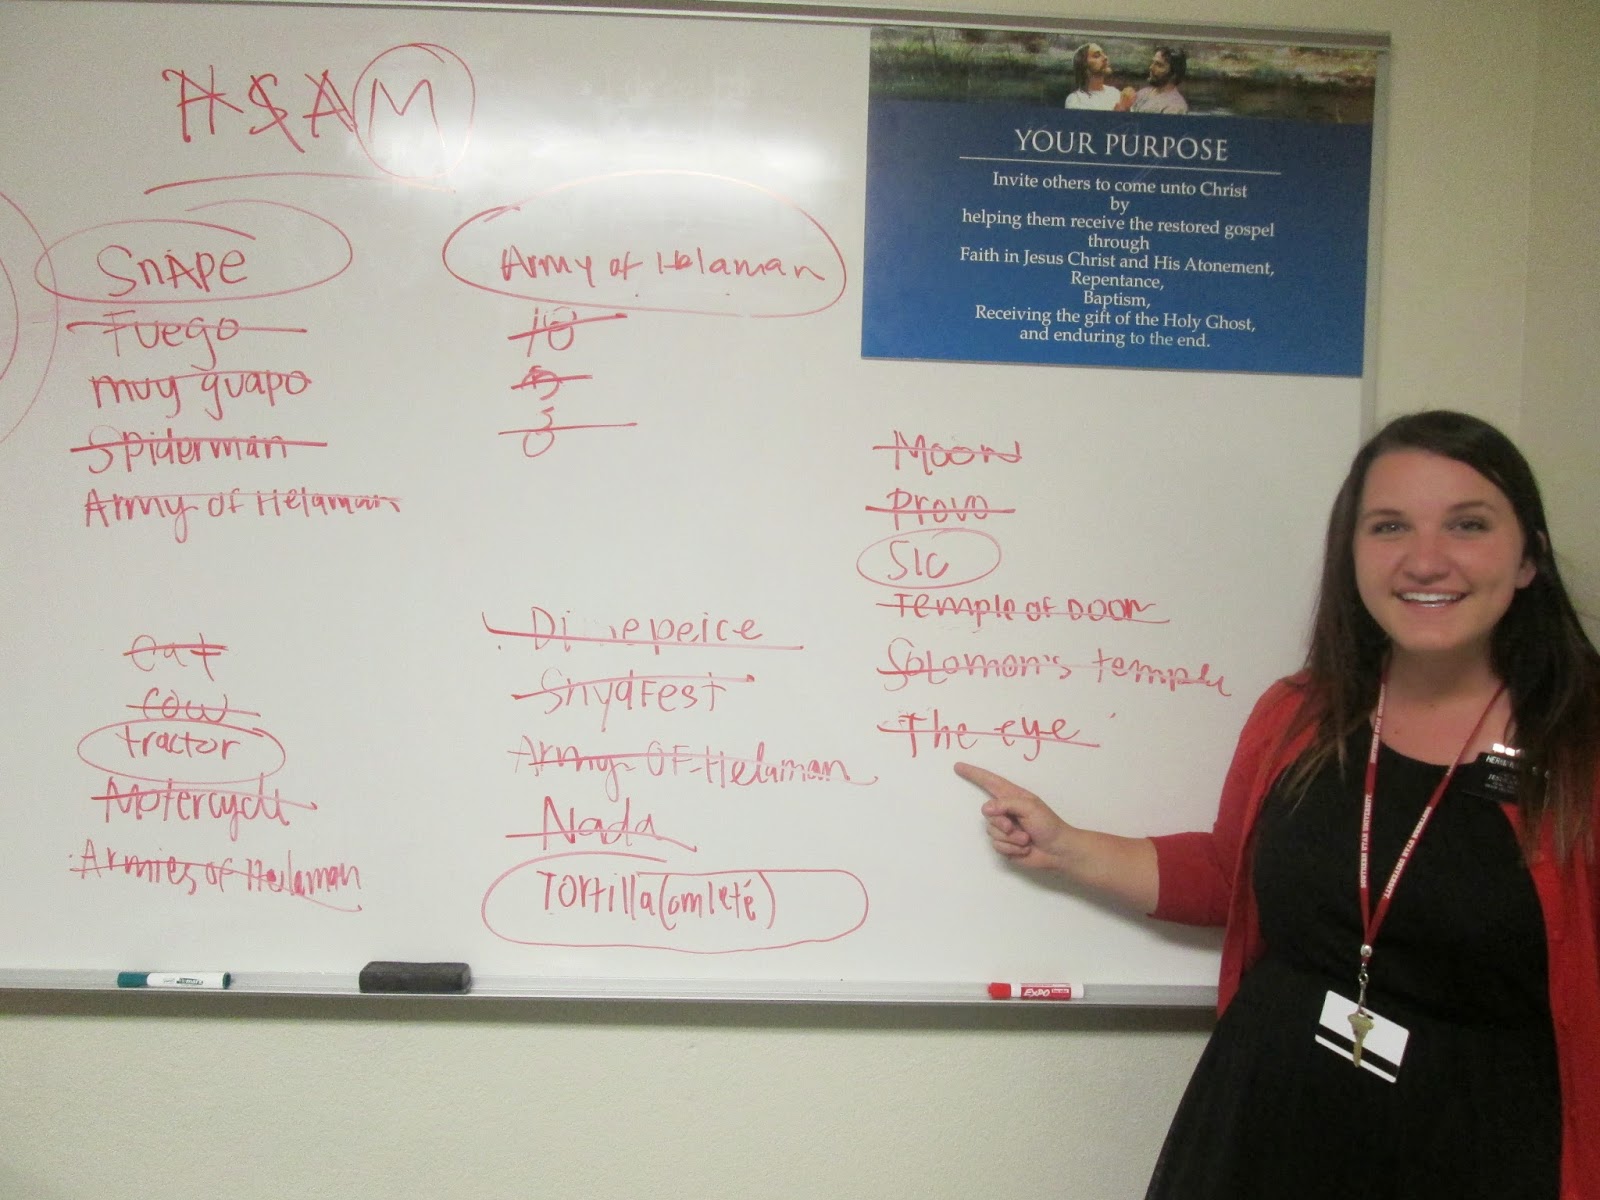 MASH
YOUR PURPOSE
Invite others to come unto Christ
by
helping them receive the restored gospel
through
Faith in Jesus Christ and His Atonement,
Repentance,
Baptism,
Receiving the gift of the Holy Ghost,
and enduring to the end.
Snape
Fuego
muy guapo
Spiderman
Army of Helaman
Army of Helaman
10
5
Moon
Provo
SLC
Temple of Doom
Solomon's temple
The eye
cat
cow
tractor
Motercycle
Armies of Helaman
SnydFest
Army OF Helaman
Nada
Tortilla (omleté)
EXPO
SOUTHERN UTAH UNIVERSITY
SOUTHERN UTAH UNIVERSITY